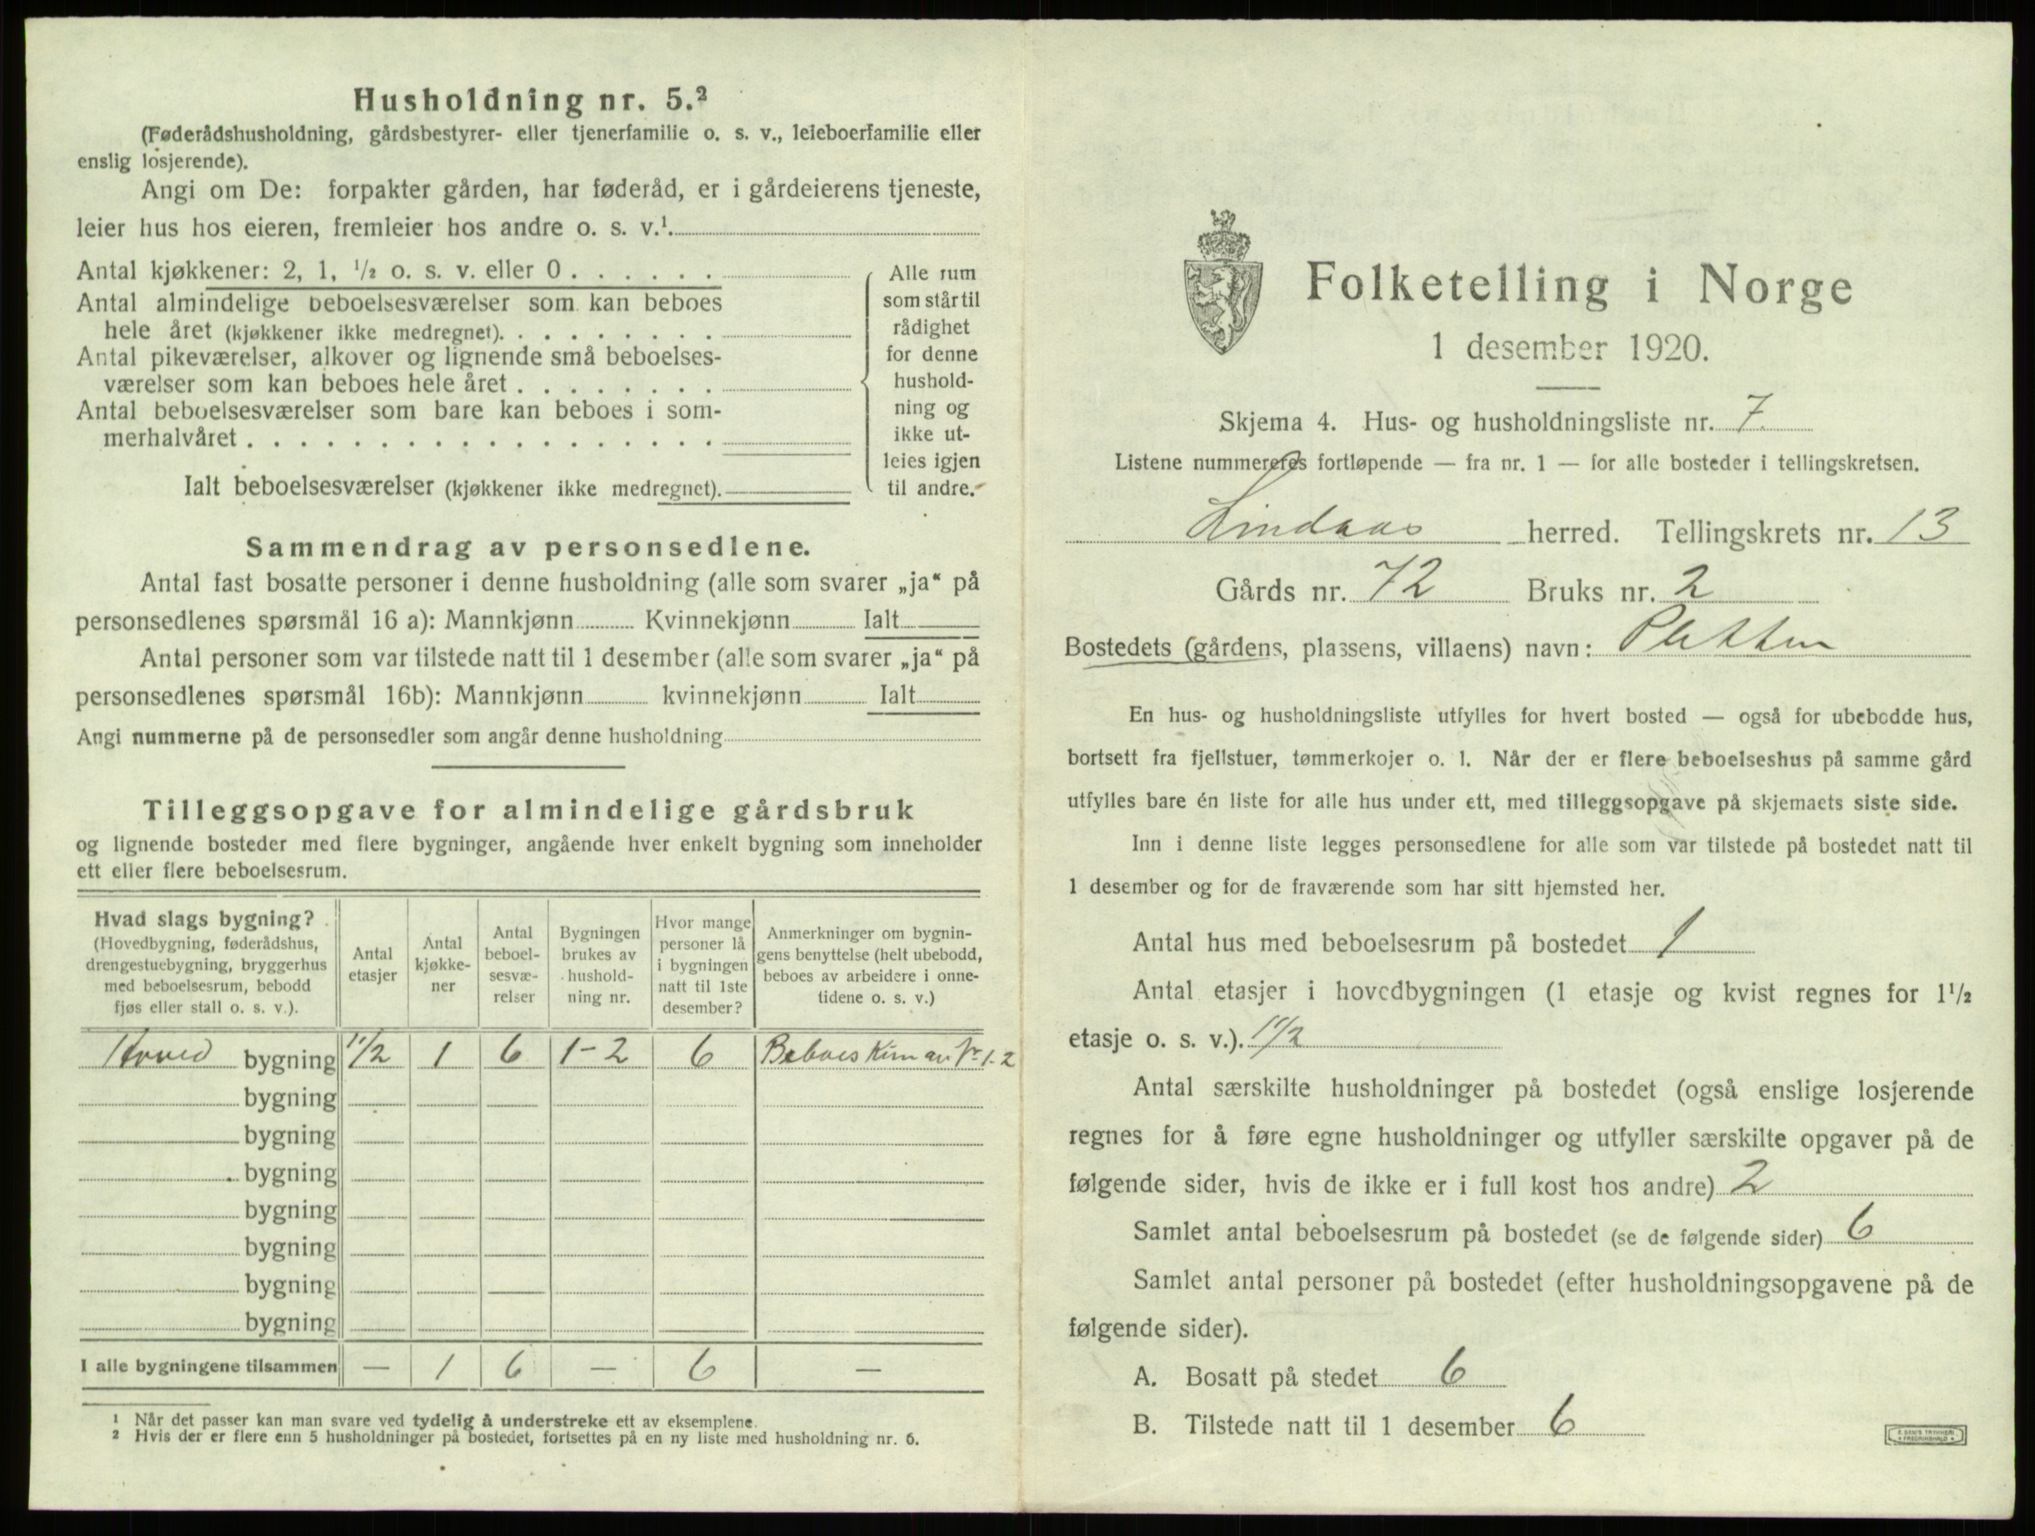 Husholdning nr. 5.²
(Føderådshusholdning, gårdsbestyrer- eller tjenerfamilie o. s. v., leieboerfamilie eller
enslig losjerende).
Angi om De: forpakter gården, har føderåd, er i gårdeierens tjeneste,
leier hus hos eieren, fremleier hos andre o. s. v.¹
Antal kjøkkener: 2, 1, ½ o. s. v. eller 0 . . . . . .
Antal almindelige beboelsesværelser som kan beboes
hele året (kjøkkener ikke medregnet). . . . . . . . .
Antal pikeværelser, alkover og lignende små beboelses-
værelser som kan beboes hele året . . . . . . . .
Antal beboelsesværelser som bare kan beboes i som-
merhalvåret . . . . . . . . . . . . . . . . . .
Ialt beboelsesværelser (kjøkkener ikke medregnet).
Alle rum
som står til
rådighet
for denne
hushold-
ning og
ikke ut-
leies igjen
til andre.
Sammendrag av personsedlene.
Antal fast bosatte personer i denne husholdning (alle som svarer „ja“ på
personsedlenes spørsmål 16 a): Mannkjønn Kvinnekjønn Ialt
Antal personer som var tilstede natt til 1 desember (alle som svarer „ja“ på
personsedlenes spørsmål 16b): Mannkjønn kvinnekjønn Ialt
Angi nummerne på de personsedler som angår denne husholdning
Tilleggsopgave for almindelige gårdsbruk
og lignende bosteder med flere bygninger, angående hver enkelt bygning som inneholder
ett eller flere beboelsesrum.
Hvad slags bygning?
(Hovedbygning, føderådshus,
drengestuebygning, bryggerhus
med beboelsesrum, bebodd
fjøs eller stall o. s. v.).
Antal
etasjer
Antal
kjøkke-
ner
Antal
beboel-
sesvæ-
relser
Bygningen
brukes av
hushold-
ning nr.
Hvor mange
personer lå
i bygningen
natt til 1ste
desember?
Anmerkninger om bygnin-
gens benyttelse (helt ubebodd,
beboes av arbeidere i onne-
tidene o. s. v.)
Hoved bygning 1½ 1 6 1-2 6 Beboes Kun av Nr 1-2
bygning
bygning
bygning
bygning
bygning
bygning
bygning
I alle bygningene tilsammen — 1 6 — 6 —
¹ Når det passer kan man svare ved tydelig å understreke ett av eksemplene.
² Hvis der er flere enn 5 husholdninger på bostedet, fortsettes på en ny liste med husholdning nr. 6.
Folketelling i Norge
1 desember 1920.
Skjema 4. Hus- og husholdningsliste nr. 7.
Listene nummereres fortløpende — fra nr. 1 — for alle bosteder i tellingskretsen.
Lindaas herred. Tellingskrets nr. 13
Gårds nr. 72 Bruks nr. 2
Bostedets (gårdens, plassens, villaens) navn: Pletten
En hus- og husholdningsliste utfylles for hvert bosted — også for ubebodde hus,
bortsett fra fjellstuer, tømmerkojer o. l. Når der er flere beboelseshus på samme gård
utfylles bare én liste for alle hus under ett, med tilleggsopgave på skjemaets siste side.
Inn i denne liste legges personsedlene for alle som var tilstede på bostedet natt til
1 desember og for de fraværende som har sitt hjemsted her.
Antal hus med beboelsesrum på bostedet 1
Antal etasjer i hovedbygningen (1 etasje og kvist regnes for 1½
etasje o. s. v.). 1½
Antal særskilte husholdninger på bostedet (også enslige losjerende
regnes for å føre egne husholdninger og utfyller særskilte opgaver på de
følgende sider, hvis de ikke er i full kost hos andre) 2
Samlet antal beboelsesrum på bostedet (se de følgende sider) 6
Samlet antal personer på bostedet (efter husholdningsopgavene på de
følgende sider).
A. Bosatt på stedet 6
B. Tilstede natt til 1 desember 6